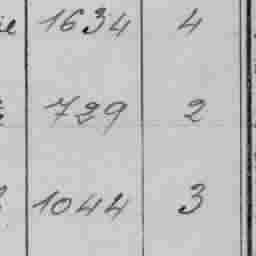 1634 4
729 2
1044 3